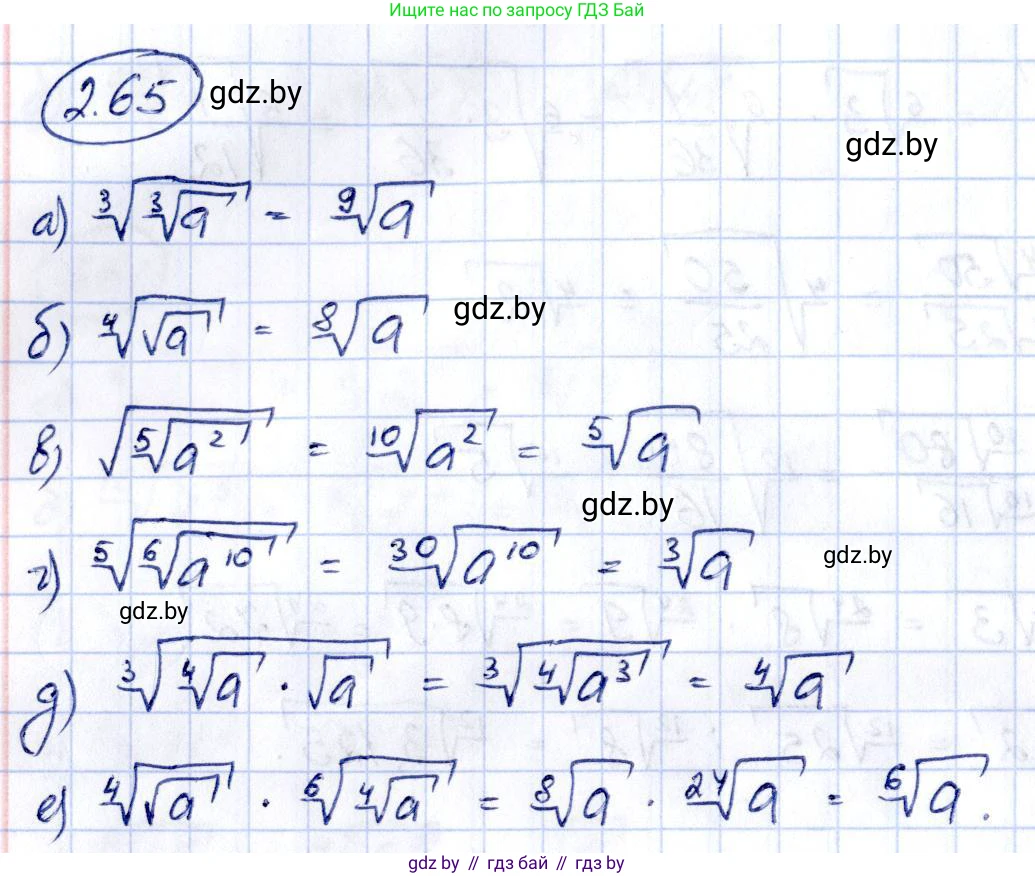 Ищите нас по запросу ГДЗ Бай
2.65 gdz.by
gdz.by
а) ∛(∛a) = ⁹√a
б) ⁴√(√a) = ⁸√a gdz.by
в) √(⁵√(a²)) = ¹⁰√(a²) = ⁵√a
gdz.by
г) ⁵√(⁶√(a¹⁰)) = ³⁰√(a¹⁰) = ³√a gdz.by
gdz.by
д) ³√(⁴√a · √a) = ³√(⁴√(a³)) = ⁴√a
е) ⁴√(√a) · ⁶√(⁴√a) = ⁸√a · ²⁴√a = ⁶√a.
gdz.by // гдз бай // гдз by